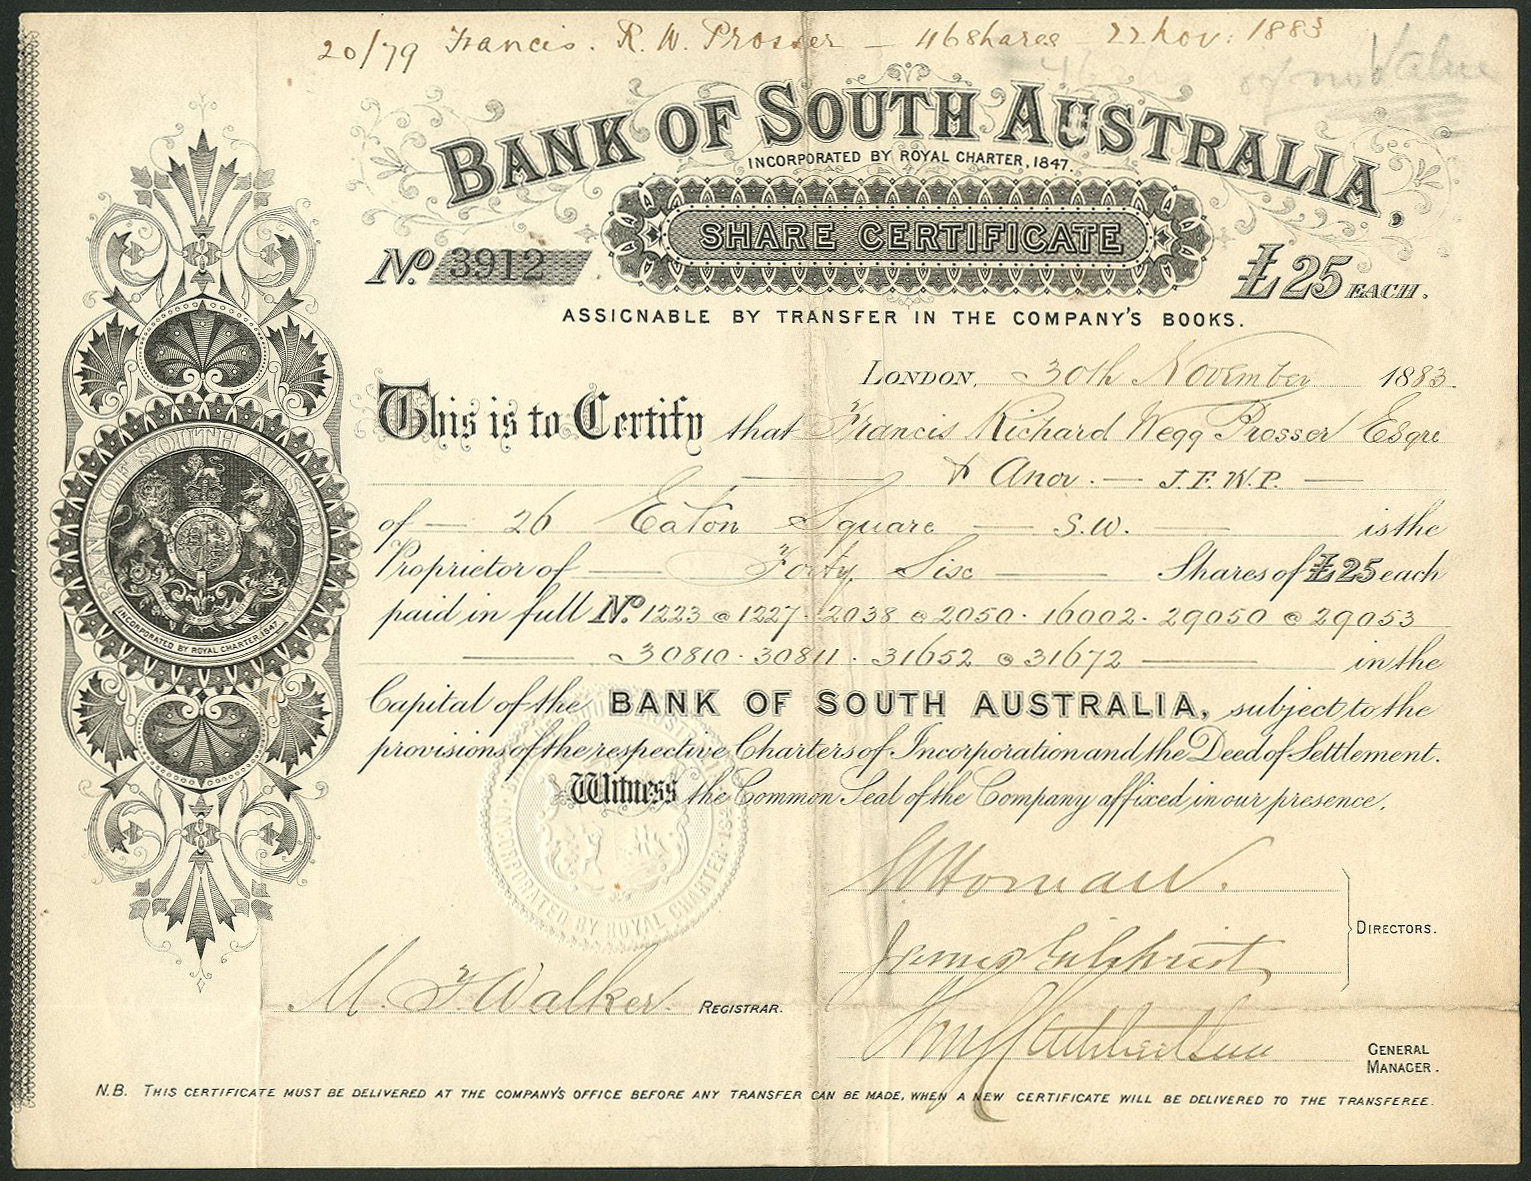 20/79 Francis. R. W. Prosser — 46 Shares 22 Nov: 1883
of no Value
BANK OF SOUTH AUSTRALIA,
INCORPORATED BY ROYAL CHARTER, 1847.
SHARE CERTIFICATE
No. 3912
£25 EACH.
ASSIGNABLE BY TRANSFER IN THE COMPANY'S BOOKS.
LONDON, 30th November 1883.
This is to Certify that Francis Richard Wegg Prosser Esqre
& Anor. — J.F.W.P. —
of — 26 Eaton Square — S.W. — is the
Proprietor of — Forty Six — Shares of £25 each
paid in full No. 1223 @ 1227 · 2038 @ 2050 · 16002 · 29050 @ 29053
— 30810 · 30811 · 31652 @ 31672 — in the
Capital of the BANK OF SOUTH AUSTRALIA, subject to the
provisions of the respective Charters of Incorporation and the Deed of Settlement.
Witness the Common Seal of the Company affixed in our presence.
BANK OF SOUTH AUSTRALIA
INCORPORATED BY ROYAL CHARTER, 1847
INCORPORATED BY ROYAL CHARTER · 184
James Gilchrist
DIRECTORS.
M. F. Walker. REGISTRAR.
GENERAL
MANAGER.
N.B. THIS CERTIFICATE MUST BE DELIVERED AT THE COMPANY'S OFFICE BEFORE ANY TRANSFER CAN BE MADE, WHEN A NEW CERTIFICATE WILL BE DELIVERED TO THE TRANSFEREE.